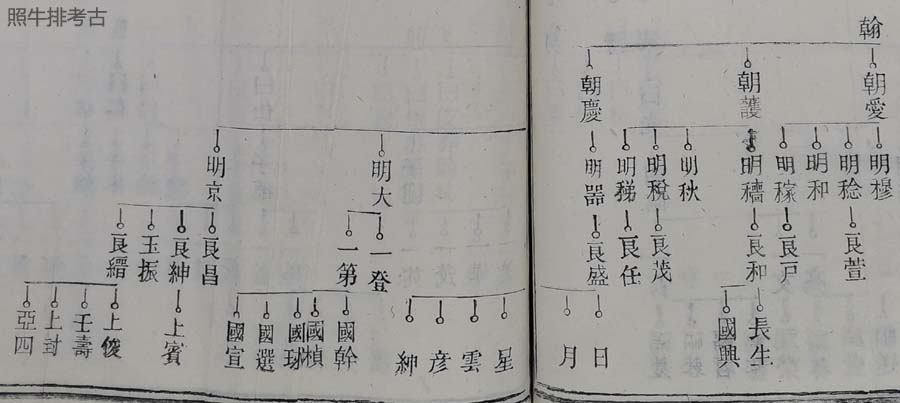 照牛排考古
翰
朝愛
朝護
朝慶
明穆
明稔
明和
明稼
明穡
明秋
明稅
明稊
明器
明大
明京
良萱
良戸
良和
良茂
良任
良盛
一登
一第
良昌
良紳
玉振
良縉
長生
國興
日
月
星
雲
彦
紳
國幹
國楨
國球
國選
國宣
上賓
上俊
壬壽
上封
亞四